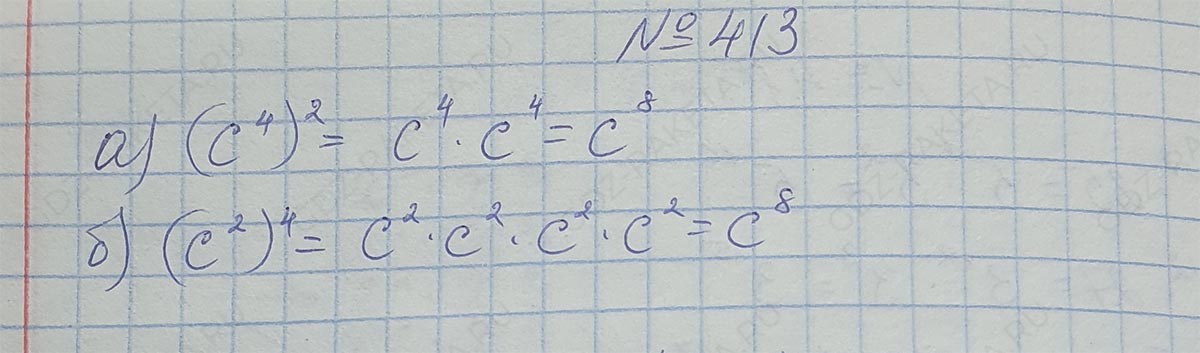 № 413
а) (c⁴)² = c⁴ · c⁴ = c⁸
б) (c²)⁴ = c² · c² · c² · c² = c⁸